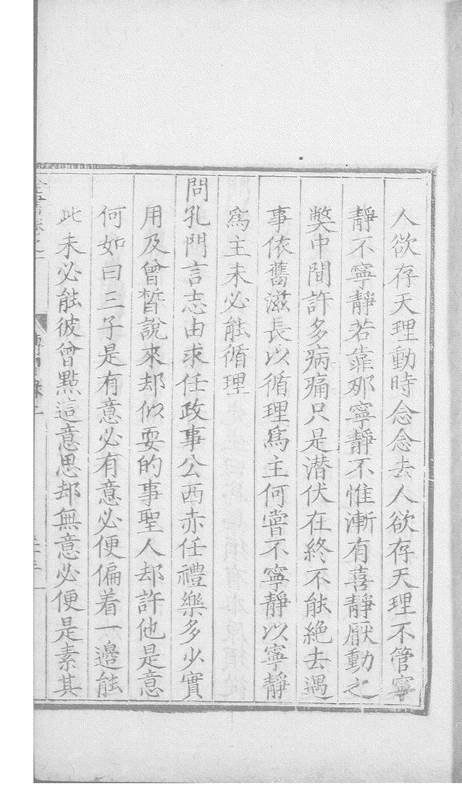 人欲存天理動時念念去人欲存天理不管寧
靜不寧靜若靠那寧靜不惟漸有喜靜厭動之
獘中間許多病痛只是潜伏在終不能絶去遇
事依舊滋長以循理爲主何嘗不寧靜以寧靜
爲主未必能循理
問孔門言志由求任政事公西赤任禮樂多少實
用及曾晳說來却似耍的事聖人却許他是意
何如曰三子是有意必有意必便偏着一邊能
此未必能彼曾點這意思却無意必便是素其